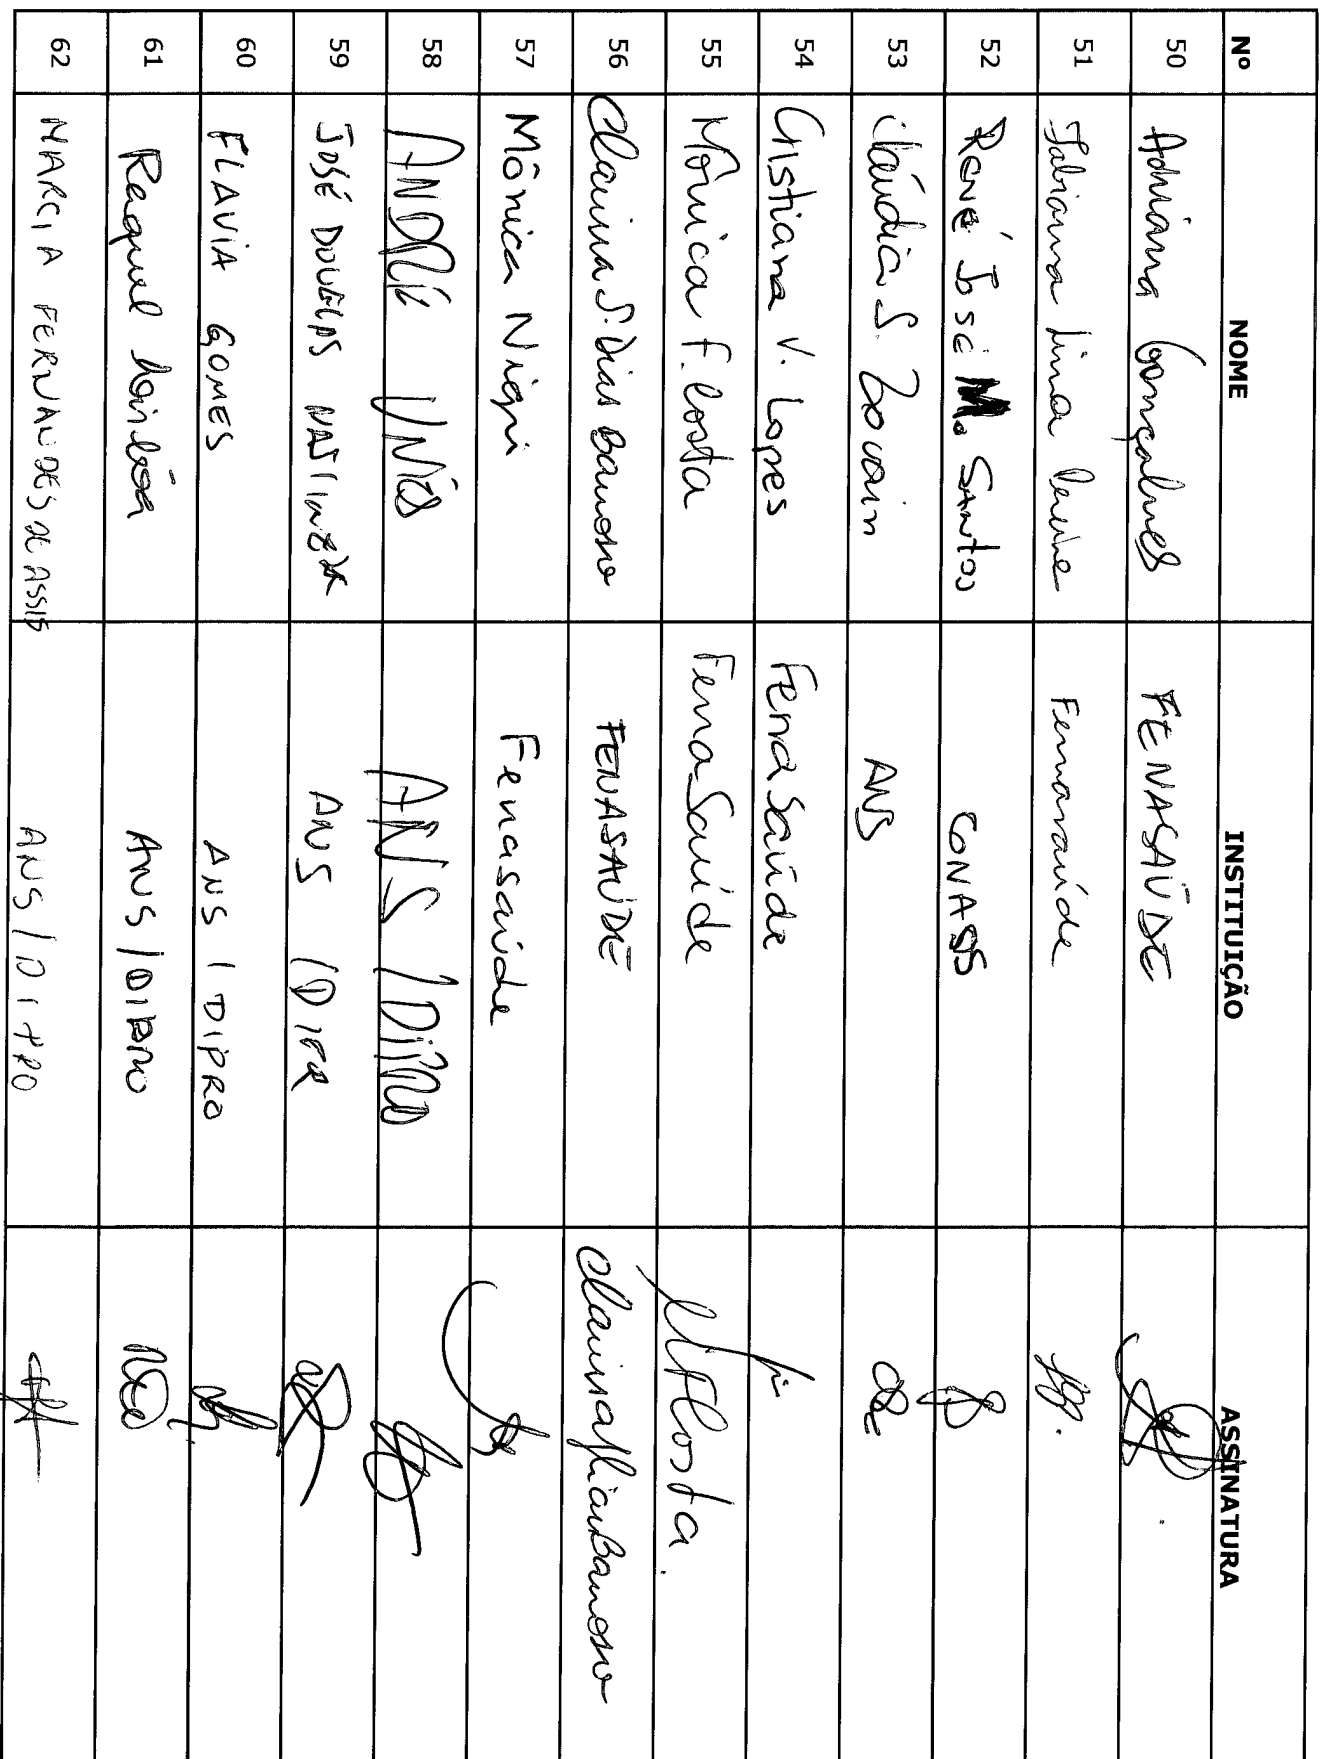 Nº NOME INSTITUIÇÃO ASSINATURA
50 Adriana Gonçalves FENASAÚDE
51 Fabianna Lima Fenasaúde
52 René José M. Santos CONASS
53 Cláudia S. Zouvain ANS
54 Cristiana V. Lopes FenaSaúde
55 Mônica F. Costa FenaSaúde MFCosta.
56 Clarissa S. Dias Barroso FENASAÚDE
57 Mônica Nigri Fenasaúde
58 ANDRÉ ANS/DIPRO
59 JOSÉ DOUGLAS ANS
60 FLAVIA GOMES ANS/DIPRO
61 Raquel ANS/DIPRO
62 MARCIA FERNANDES DE ASSIS ANS/DIPRO